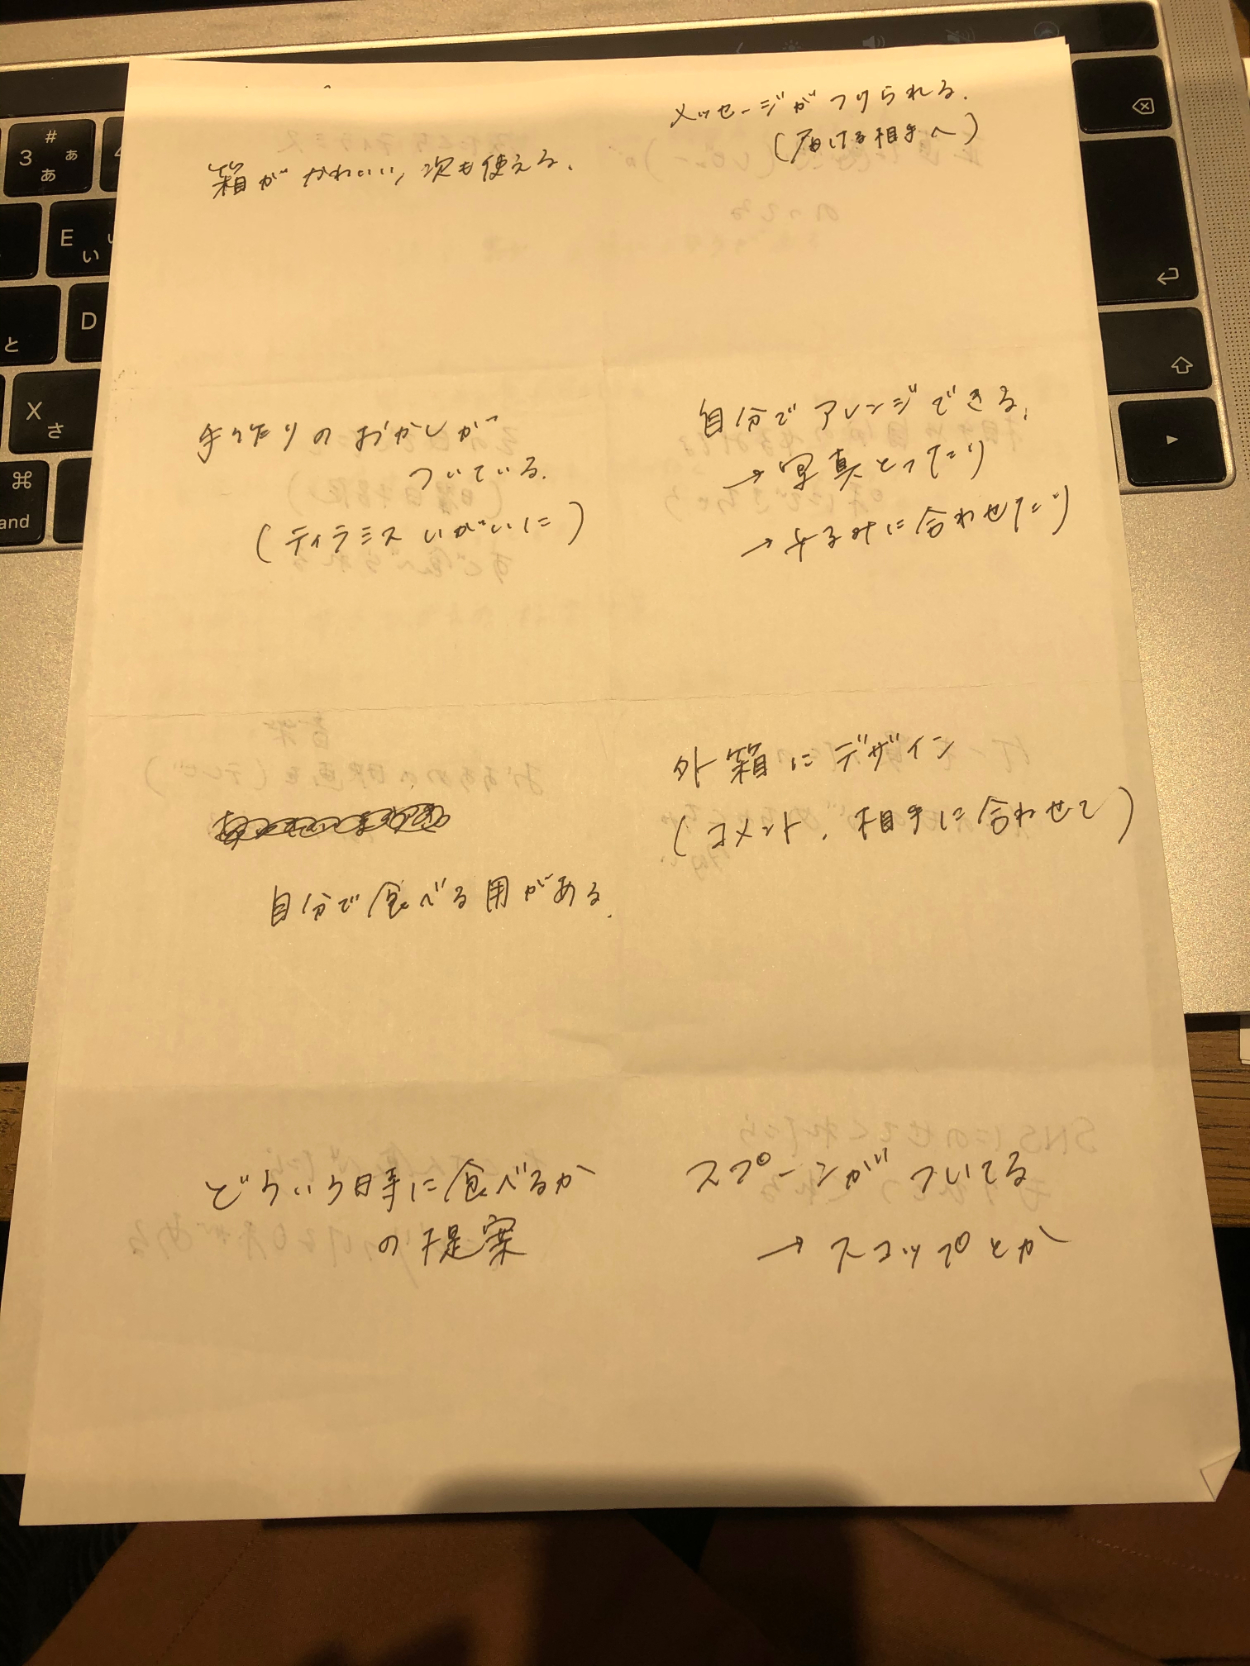 箱がかわいい、次も使える。
メッセージがつけられる。
(届ける相手へ)
手作りのおかしが
ついている。
(ティラミスいがいに)
自分でアレンジできる。
→ 写真とったり
→ に合わせたり
自分で食べる用がある。
外箱にデザイン
(コメント、相手に合わせて)
どういう時に食べるか
の提案
スプーンがついてる
→ スコップとか